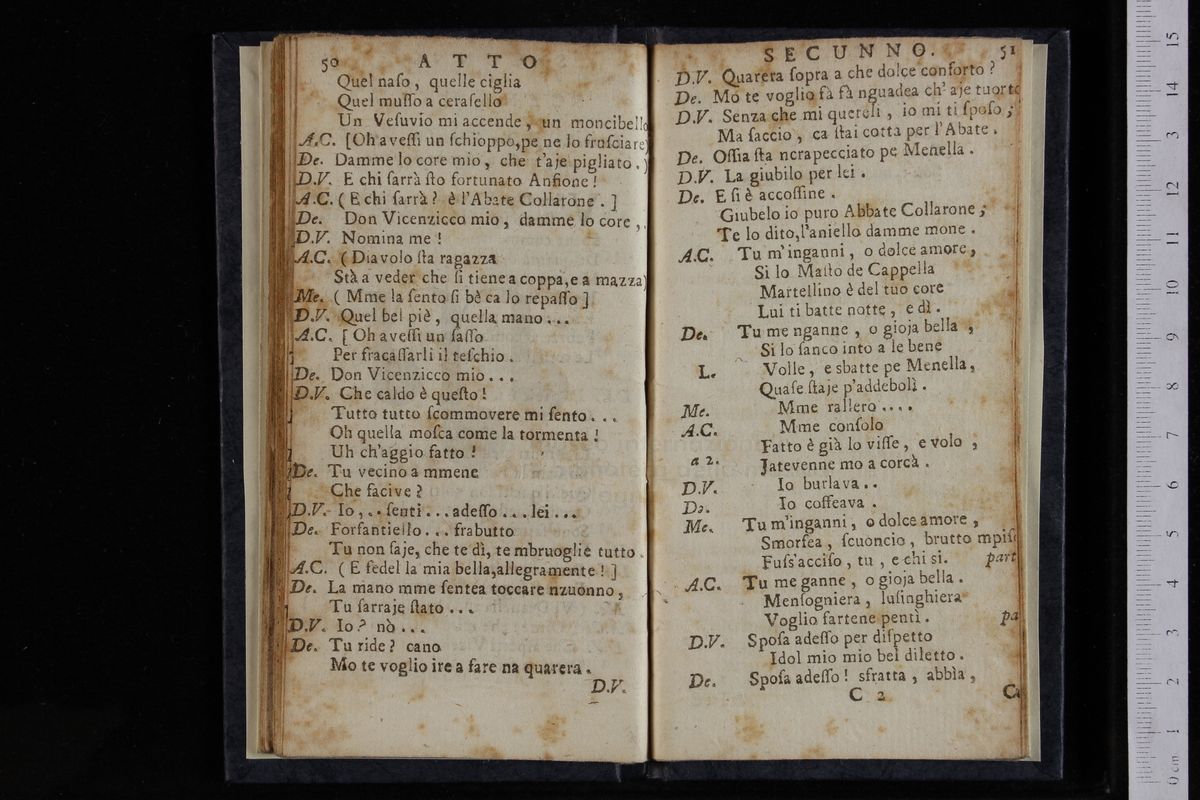 50 ATTO
Quel naſo, quelle ciglia
Quel muſſo a ceraſello
Un Veſuvio mi accende, un moncibello
A.C. [Oh aveſſi un ſchioppo, pe ne lo fruſciare)
De. Damme lo core mio, che t'aje pigliato.)
D.V. E chi ſarrà ſto fortunato Anfione!
A.C. (E chi ſarrà? è l'Abate Collarone.]
De. Don Vicenzicco mio, damme lo core,
D.V. Nomina me!
A.C. (Diavolo ſta ragazza
Stà a veder che ſi tiene a coppa, e a mazza)
Me. (Mme la ſento ſi bè ca lo repaſſo]
D.V. Quel bel piè, quella mano...
A.C. [Oh aveſſi un ſaſſo
Per fracaſſarli il teſchio.
De. Don Vicenzicco mio...
D.V. Che caldo è queſto!
Tutto tutto ſcommovere mi ſento...
Oh quella moſca come la tormenta!
Uh ch'aggio fatto!
De. Tu vecino a mmene
Che facive?
D.V. Io,.. ſenti... adeſſo... lei...
De. Forfantiello... frabutto
Tu non ſaje, che te dì, te mbruoglie tutto.
A.C. (E fedel la mia bella, allegramente!]
De. La mano mme ſentea toccare nzuonno,
Tu ſarraje ſtato...
D.V. Io? nò...
De. Tu ride? cano
Mo te voglio ire a fare na quarera.
D.V.
SECUNNO. 51
D.V. Quarera ſopra a che dolce conforto?
De. Mo te voglio fà fà nguadea ch'aje tuorto
D.V. Senza che mi quereli, io mi ti ſpoſo;
Ma ſaccio, ca ſtai cotta per l'Abate.
De. Oſſia ſta ncrapecciato pe Menella.
D.V. La giubilo per lei.
De. E ſi è accoſſine.
Giubelo io puro Abbate Collarone;
Te lo dito, l'aniello damme mone.
A.C. Tu m'inganni, o dolce amore,
Si lo Maſto de Cappella
Martellino è del tuo core
Lui ti batte notte, e dì.
De. Tu me nganne, o gioja bella,
Si lo ſanco into a le bene
L. Volle, e sbatte pe Menella,
Quaſe ſtaje p'addebolì.
Me. Mme rallero....
A.C. Mme conſolo
Fatto è già lo viſſe, e volo,
a 2. Jatevenne mo a corcà.
D.V. Io burlava..
De. Io coffeava.
Me. Tu m'inganni, o dolce amore,
Smorfea, ſcuoncio, brutto mpiſo
Fuſs'acciſo, tu, e chi si. part
A.C. Tu me ganne, o gioja bella.
Menſogniera, luſinghiera
Voglio fartene pentì. pa
D.V. Spoſa adeſſo per diſpetto
Idol mio mio bel diletto.
De. Spoſa adeſſo! sfratta, abbìa,
C 2